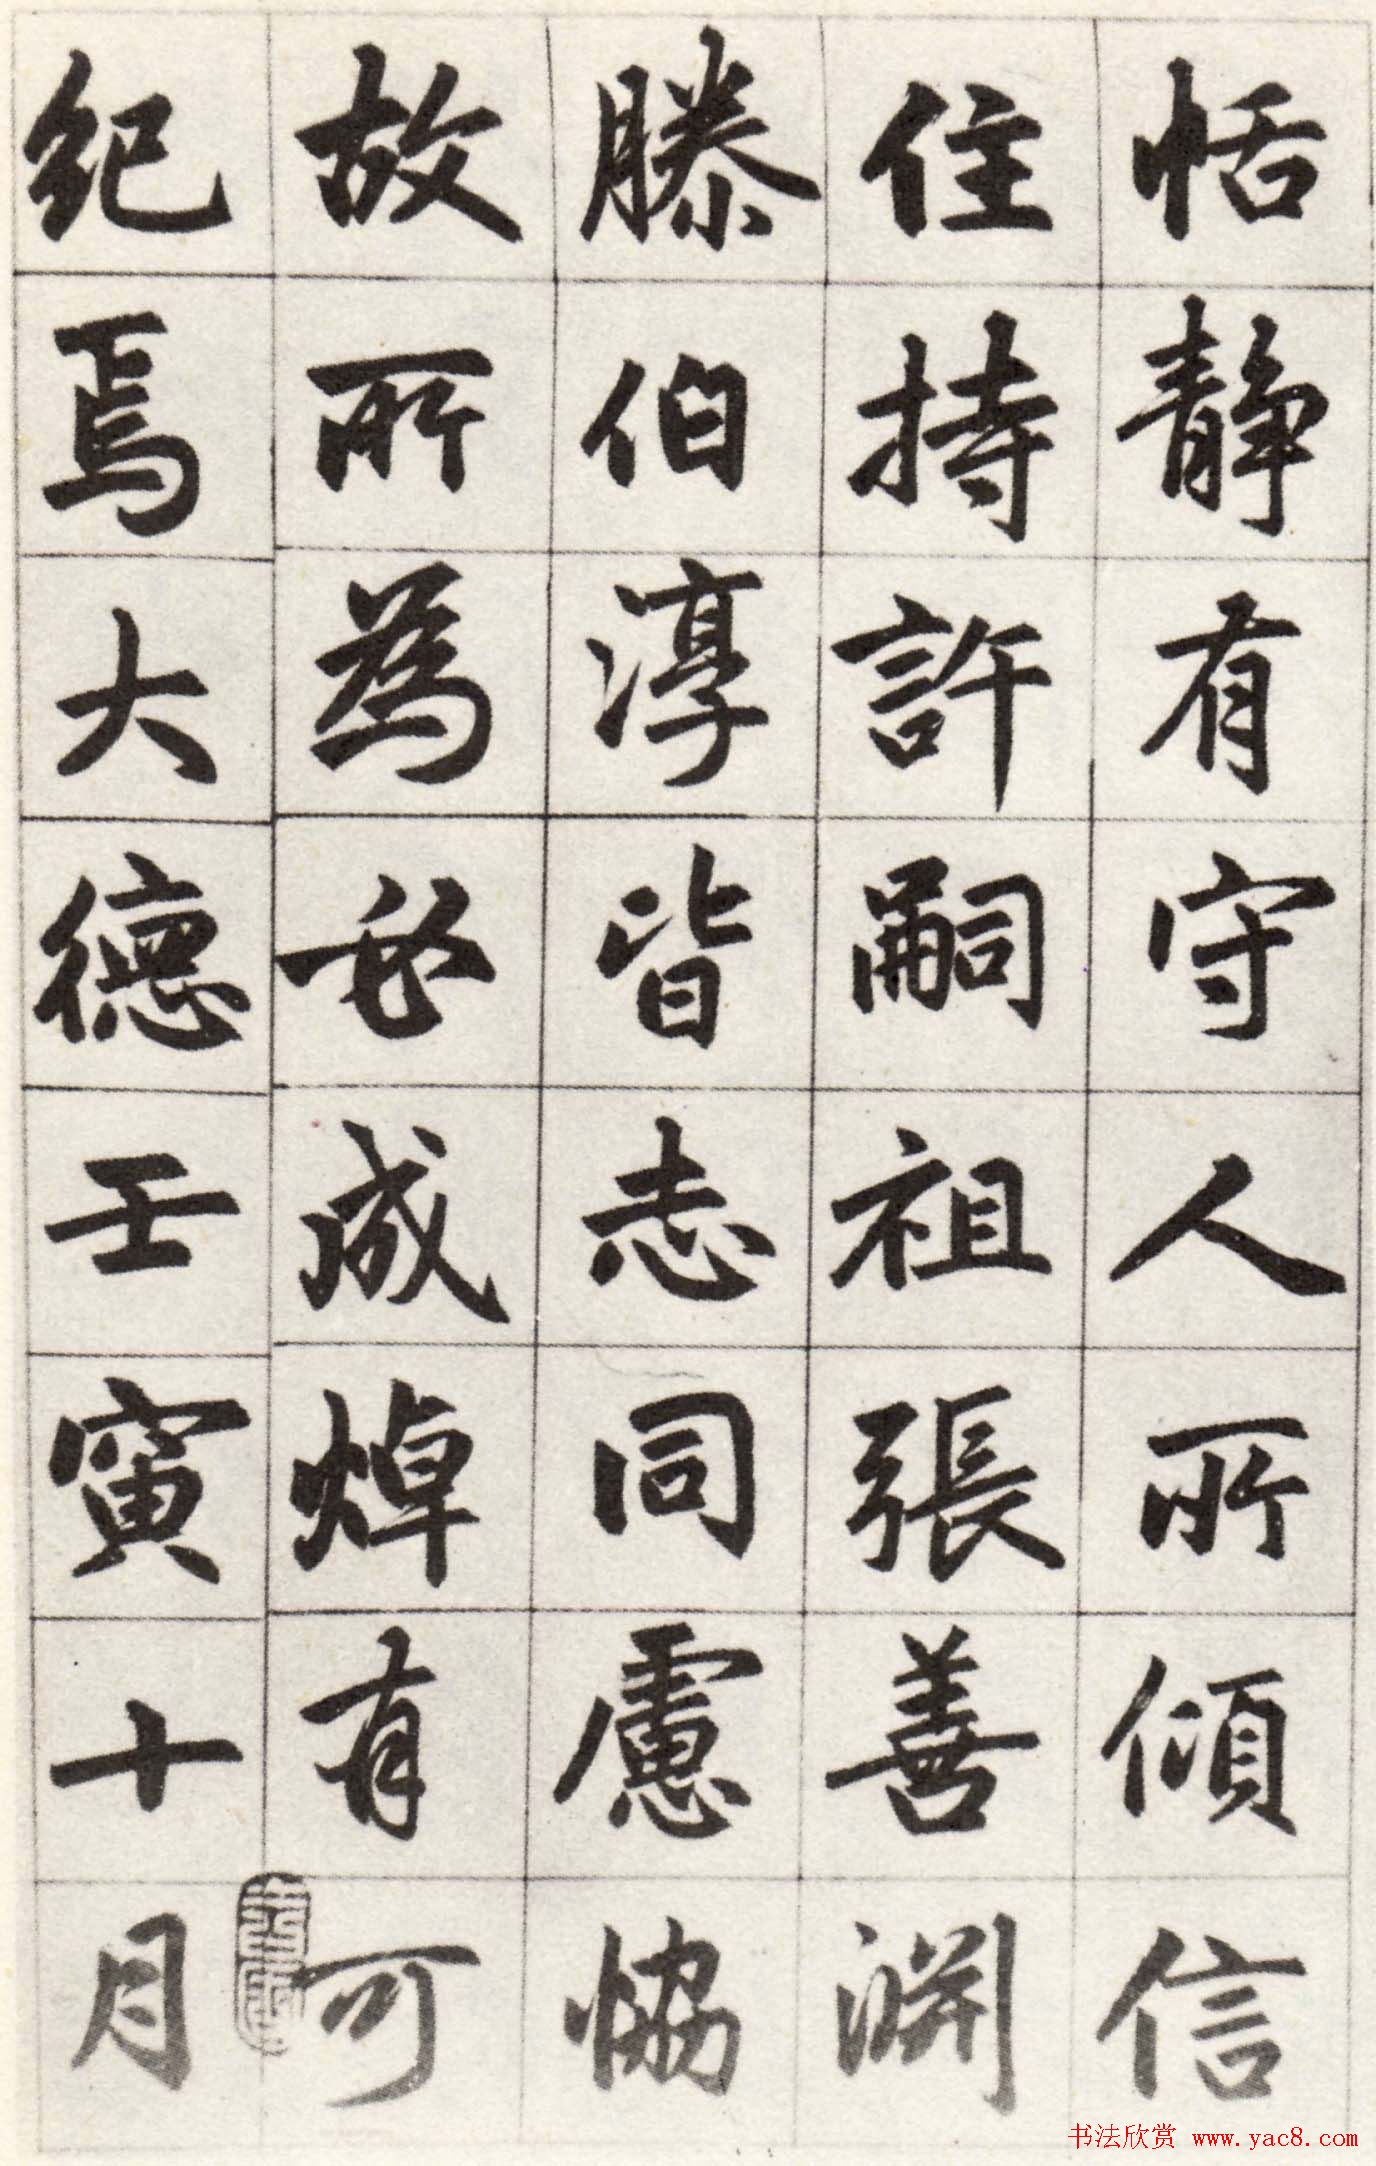 恬静有守人所傾信
住持許嗣祖張善淵
滕伯淳皆志同慮恊
故所爲必成焯有可
紀焉大德壬寅十月
书法欣赏 www.yac8.com